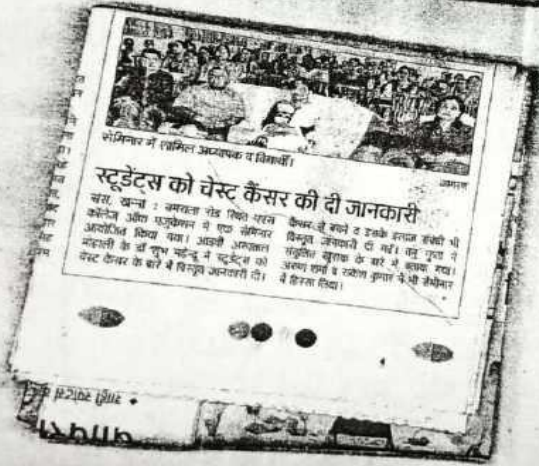 सेमिनार में शामिल अध्यापक व विद्यार्थी।
जागरण
स्टूडेंट्स को चेस्ट कैंसर की दी जानकारी
संस, खन्ना : समराला रोड स्थित
कॉलेज ऑफ एजुकेशन में एक सेमिनार
आयोजित किया गया। आइवी अस्पताल
मोहाली के डॉ शुभ महेन्द्रू ने स्टूडेंट्स को
चेस्ट कैंसर के बारे में विस्तृत जानकारी दी।
कैंसर से बचने व उसके इलाज संबंधी भी
विस्तृत जानकारी दी गई। तनु गुप्ता ने
संतुलित खुराक के बारे में बताया गया।
अरुण शर्मा व राकेश कुमार ने भी सेमीनार
में हिस्सा लिया।